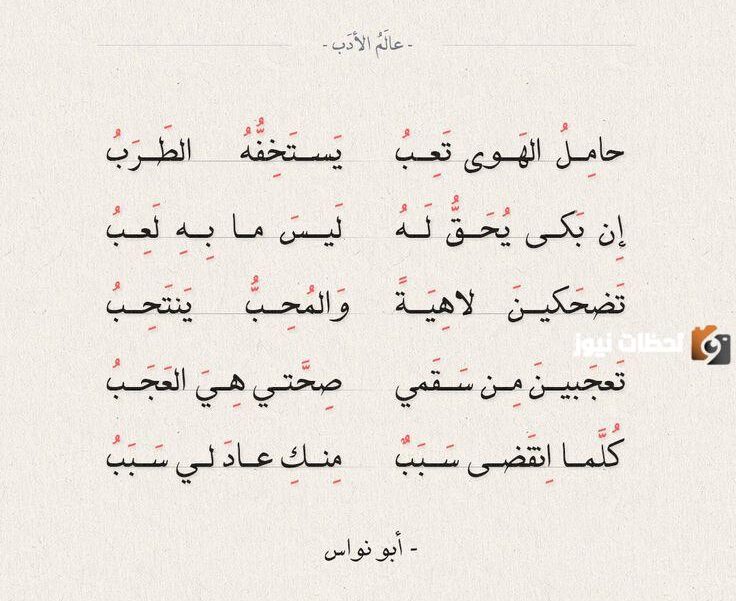 - عالَمُ الأدَب -
حامِلُ الهَوى تَعِبُ يَستَخِفُّهُ الطَرَبُ
إِن بَكى يُحَقُّ لَهُ لَيسَ ما بِهِ لَعِبُ
تَضحَكينَ لاهِيَةً وَالمُحِبُّ يَنتَحِبُ
لحظات نيوز
تَعجَبينَ مِن سَقَمي صِحَّتي هِيَ العَجَبُ
كُلَّما اِنقَضى سَبَبٌ مِنكِ عادَ لي سَبَبُ
- أبو نواس